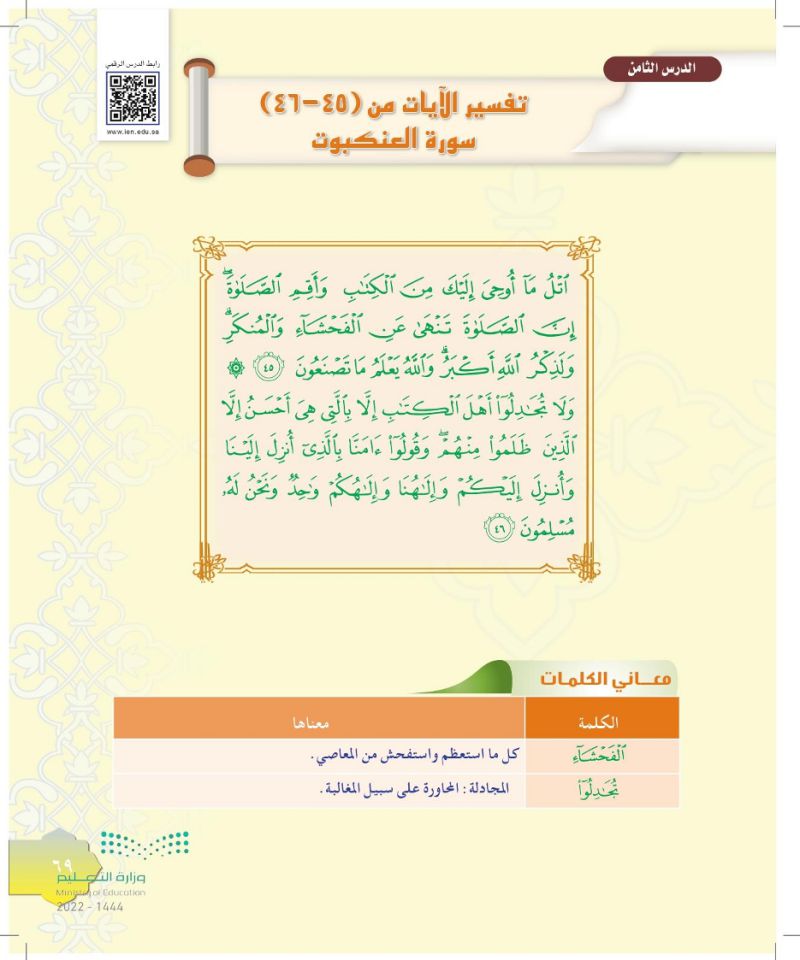 رابط الدرس الرقمي
www.ien.edu.sa
الدرس الثامن
تفسير الآيات من (٤٥-٤٦)
سورة العنكبوت
ٱتْلُ مَآ أُوحِىَ إِلَيْكَ مِنَ ٱلْكِتَٰبِ وَأَقِمِ ٱلصَّلَوٰةَۖ
إِنَّ ٱلصَّلَوٰةَ تَنْهَىٰ عَنِ ٱلْفَحْشَآءِ وَٱلْمُنكَرِۗ
وَلَذِكْرُ ٱللَّهِ أَكْبَرُۗ وَٱللَّهُ يَعْلَمُ مَا تَصْنَعُونَ ٤٥ ۞
وَلَا تُجَٰدِلُوٓا۟ أَهْلَ ٱلْكِتَٰبِ إِلَّا بِٱلَّتِى هِىَ أَحْسَنُ إِلَّا
ٱلَّذِينَ ظَلَمُوا۟ مِنْهُمْۖ وَقُولُوٓا۟ ءَامَنَّا بِٱلَّذِىٓ أُنزِلَ إِلَيْنَا
وَأُنزِلَ إِلَيْكُمْ وَإِلَٰهُنَا وَإِلَٰهُكُمْ وَٰحِدٌ وَنَحْنُ لَهُۥ
مُسْلِمُونَ ٤٦
معـــاني الكلمـات
الكلمة معناها
ٱلْفَحْشَآءِ كل ما استعظم واستفحش من المعاصي.
تُجَٰدِلُوٓا۟ المجادلة: المحاورة على سبيل المغالبة.
٦٩
وزارة التعـــليم
Ministry of Education
2022 - 1444